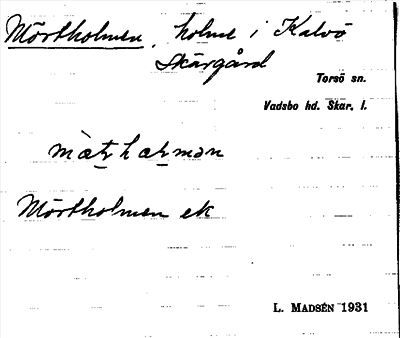 Mörtholmen, holme i Kalvö
Skärgård
Torsö sn.
Vadsbo hd. Skar. l.
Mörtholmen ek
L. MADSÉN 1931